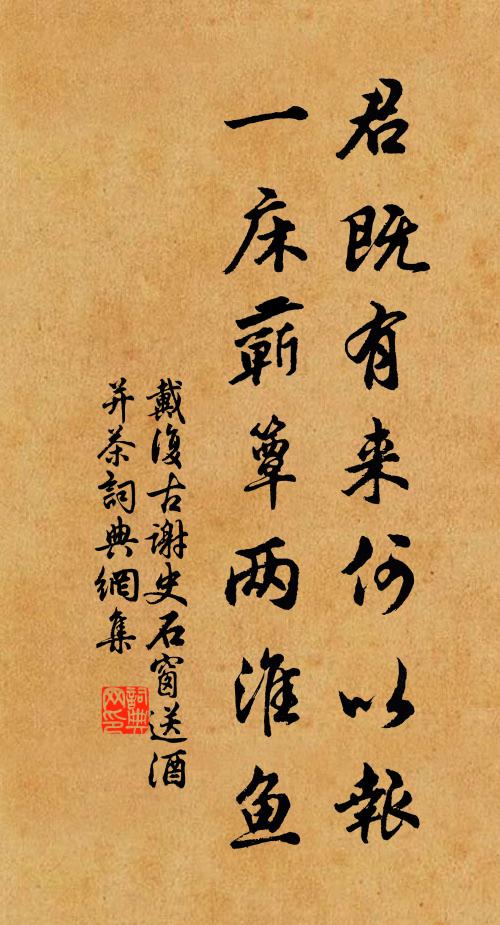 君既有来何以報
一床蕲簟两淮鱼
戴復古谢史石窗送酒
并茶詞典網集
詞典网印